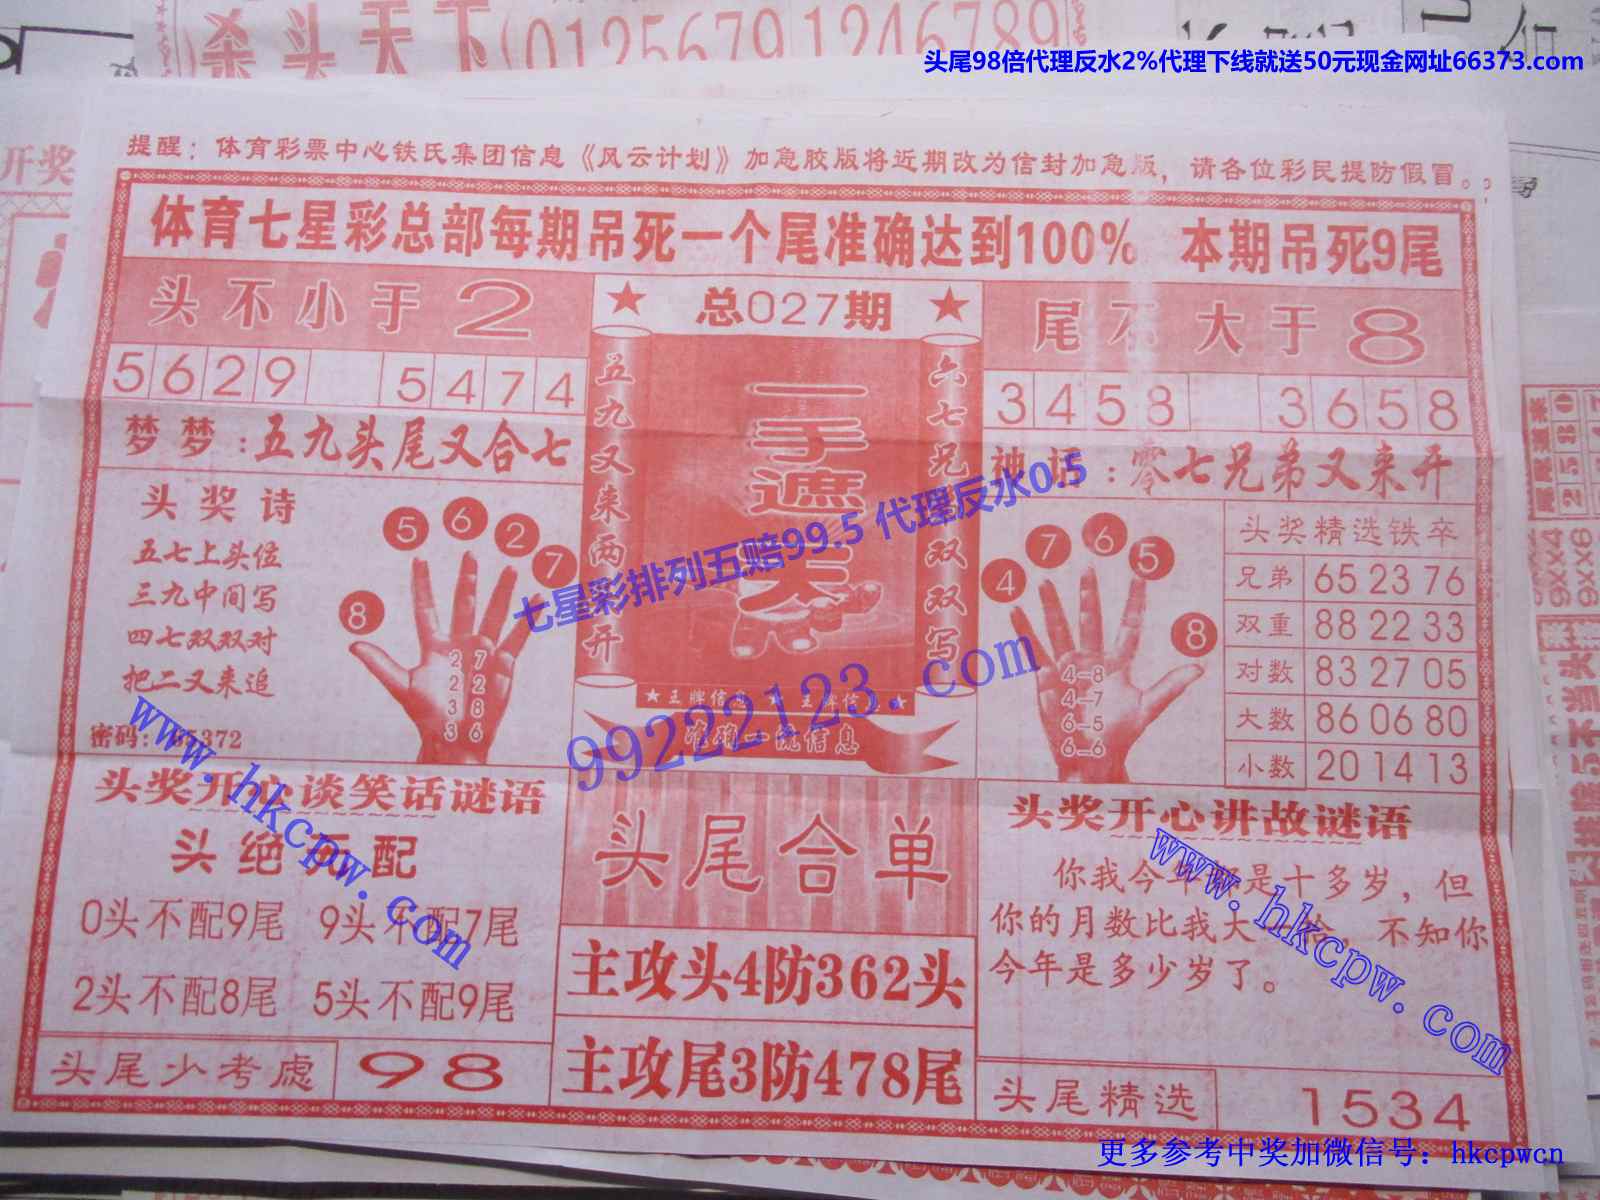 杀头天下 (01256791246789
头尾98倍代理反水2%代理下线就送50元现金网址66373.com
开奖
提醒：体育彩票中心铁氏集团信息《风云计划》加急胶版将近期改为信封加急版，请各位彩民提防假冒。
体育七星彩总部每期吊死一个尾准确达到100% 本期吊死9尾
头不小于2
★ 总027期 ★
尾不大于8
5629 5474
3458 3658
梦梦：五九头尾又合七
神话：零七兄弟又来开
五九又来两开
一手遮天
六七兄 双双写
★王牌信息 ★ 王牌信息★
准确一流信息
头奖诗
五七上头位
三九中间写
四七双双对
把二又来追
密码： 372
8 5 6 2 7
2 7
2 2
3 8
3 6
4 7 6 5 8
4–8
4–7
6–5
6–6
头奖精选铁卒
兄弟 65 23 76
双重 88 22 33
对数 83 27 05
大数 86 06 80
小数 20 14 13
七星彩排列五赔99.5 代理反水0.5
99222123.com
www.hkcpw.com
www.hkcpw.com
头奖开心谈笑话谜语
头绝死配
0头不配9尾 9头不配7尾
2头不配8尾 5头不配9尾
头尾少考虑 98
头尾合单
主攻头4防362头
主攻尾3防478尾
头奖开心讲故谜语
你我今年都是十多岁，但
你的月数比我大 ，不知你
今年是多少岁了。
头尾精选 1534
更多参考中奖加微信号：hkcpwcn